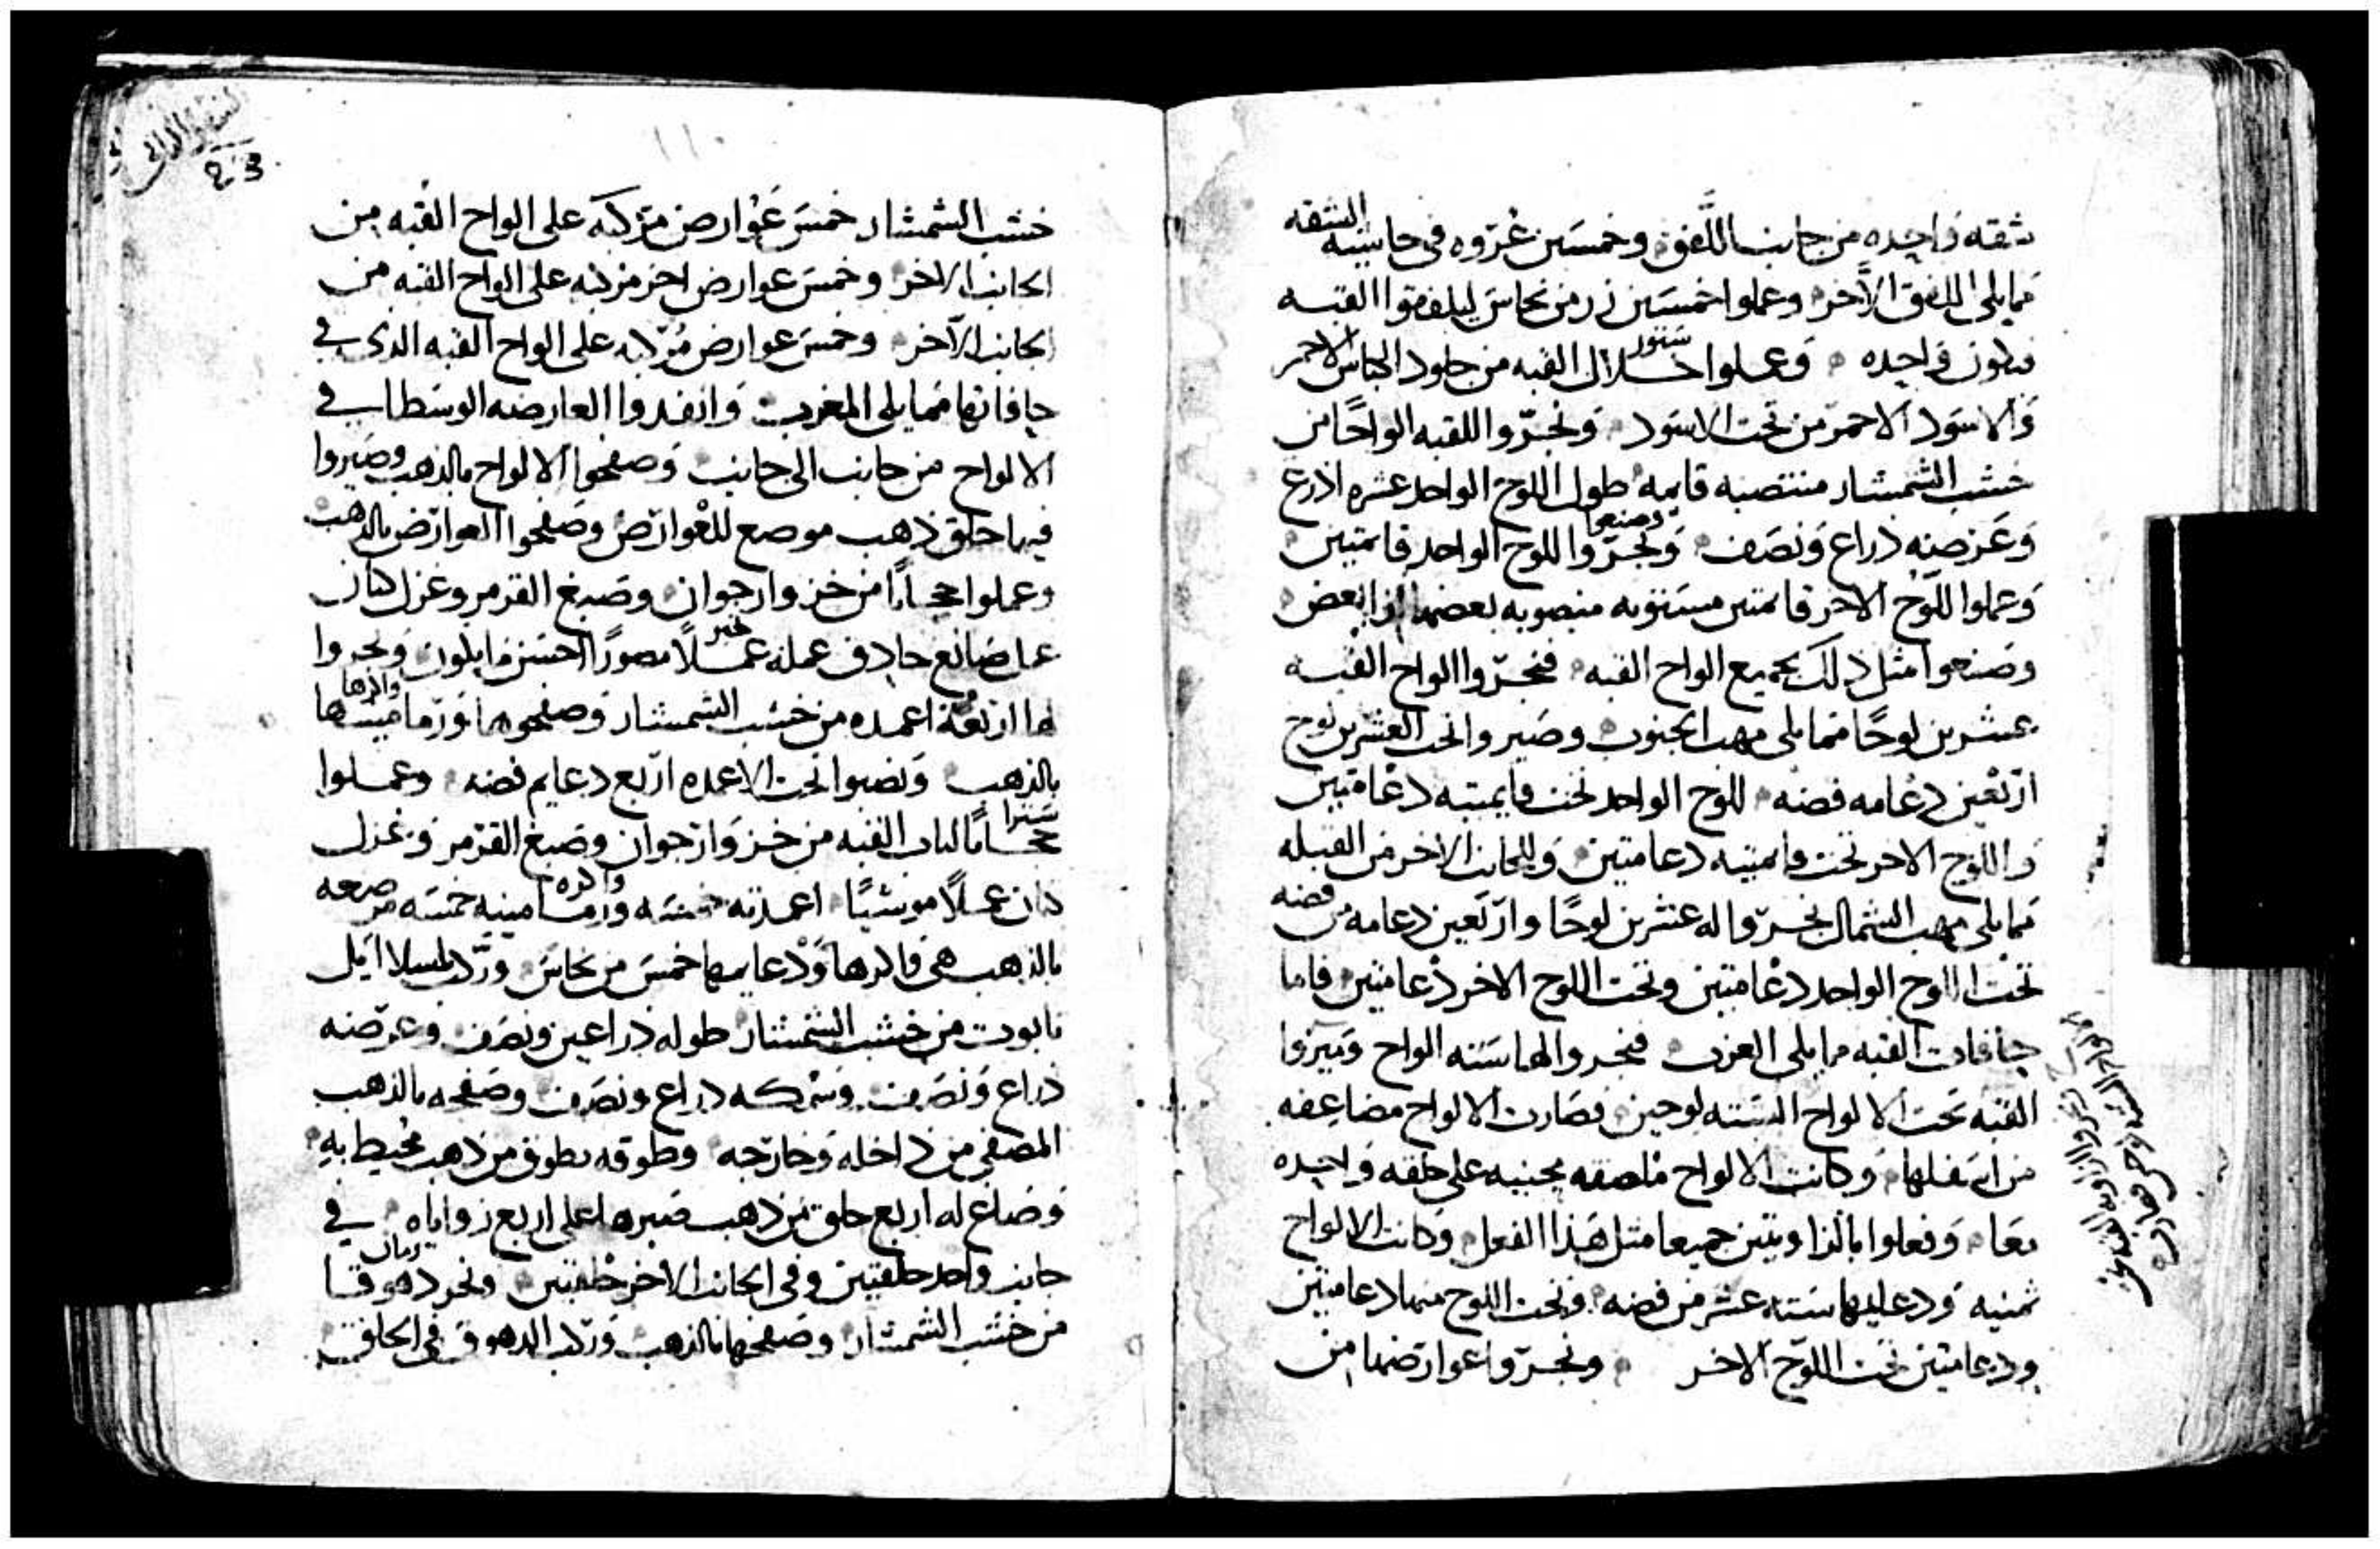 شقه واحده من جانب اللفق وخمسين عروه في حاشيه الشقه
مما يلي اللفق الآخر وعملوا خمسين زر من نحاس ليلفقوا القبه
فيكون واحده وعملوا ستور خلال القبه من جلود الكباش الاحمر
والاسود الاحمر من تحت الاسود ونجروا للقبه الواحًا من
خشب الشمشار منتصبه قايمه طول اللوح الواحد عشره اذرع
وعرضه ذراع ونصف ونجروا وصنعوا اللوح الواحد قايمتين
وعملوا اللوح الاخر قايمتين مستويه منصوبه بعضها ازا بعض
وصنعوا مثل ذلك بجميع الواح القبه فنجروا الواح القبه
عشرين لوحًا مما يلي مهب الجنوب وصيروا تحت العشرين لوح
اربعين دعامه فضه للوح الواحد تحت قايمتيه دعامتين
واللوح الاخر تحت قايمتيه دعامتين وللجانب الاخر من القبله
مما يلي مهب الشمال نجروا له عشرين لوحًا واربعين دعامه من فضه
تحت اللوح الواحد دعامتين وتحت اللوح الاخر دعامتين فاما
حافات القبه مما يلي الغرب فنجروا لها سته الواح وصيروا
القبه تحت الالواح السته لوحين فصارت الالواح مضاعفه
من اسفلها وكانت الالواح ملصقه بجنبيه على حلقه واحده
معا وفعلوا بالزاويتين جميعا مثل هذا الفعل وكانت الالواح
ثمنيه ودعايمها سته عشر من فضه وتحت اللوح منها دعامتين
ودعامتين تحت اللوح الاخر ونجروا عوارضها من
خشب الشمشار خمس عوارض مركبه على الواح القبه من
الجانب الاخر وخمس عوارض اخر مركبه على الواح القبه من
الجانب الآخر وخمس عوارض مركبه على الواح القبه الذي في
حافاتها مما يلي المغرب وانفدوا العارضه الوسطا في
الالواح من جانب الى جانب وصفحوا الالواح بالذهب وصيروا
فيها حلق ذهب موضع للعوارض وصفحوا العوارض بالذهب
وعملوا حجابًا من خز وارجوان وصبغ القرمز وغزل كتان
عمل صانع حادق عمله غير عملًا مصورًا احسن ما يكون ونجروا
لها اربعة اعمده من خشب الشمشار وصفحوها ورماميسها
بالذهب ونصبوا تحت الاعمده اربع دعايم فضه وعملوا
سترا لباب القبه من خز وارجوان وصبغ القرمز وغزل
كتان عملًا موشيًا اعمدته خمسه ورماميسه خمسه مرصعه
بالذهب ودعايمها خمس من نحاس
تابوت من خشب الشمشار طوله ذراعين ونصف وعرضه
ذراع ونصف وسمكه ذراع ونصف وصفحه بالذهب
المصفي من داخله وخارجه وطوقه بطوق من ذهب محيط به
وصاغ له اربع حلق من ذهب صيرها على اربع زواياه في
جانب واحد حلقتين وفي الجانب الاخر حلقتين ونجر دهوقا
من خشب الشمشار وصفحها بالذهب وركب الدهوق في الحلق